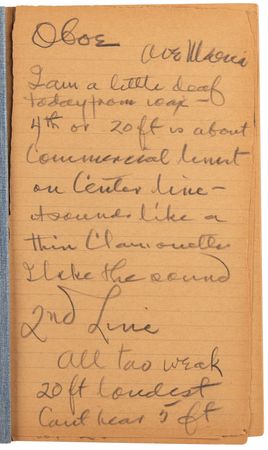 Oboe
Ave Maria
I am a little deaf
today from wax —
4th or 20 ft is about
Commercial limit
on Center line —
it sounds like a
thin Clarionette
I like the sound
2nd Line
all too weak
20 ft loudest
Cant hear 5 ft